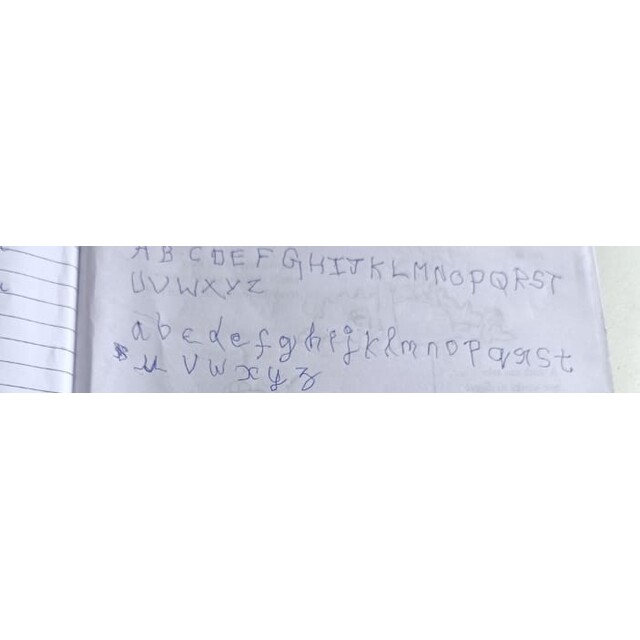 A B C D E F G H I J K L M N O P Q R S T
U V W X Y Z
a b c d e f g h i j k l m n o p q r s t
u v w x y z